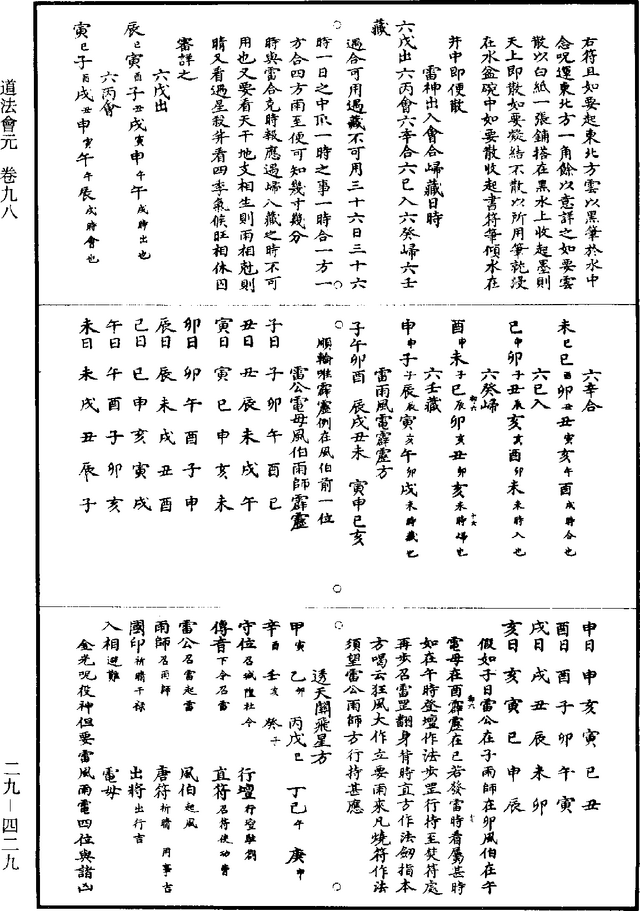 道法會元　卷九八
二九－四二九
右符且如要起東北方雲以黑筆於水中
念呪運東北方一角餘以意詳之如要雲
散以白紙一張鋪搭在黑水上收起墨則
天上即散如要凝結不散以所用筆就浸
在水盆碗中如要散收起書符筆傾水在
井中即便散
雷神出入會合歸藏日時
六戊出六丙會六辛合六巳入六癸歸六壬
藏
遇合可用遇藏不可用三十六日三十六
時一日之中爪一時之事一時合一方一
方合四方雨至便可知幾寸幾分
時與雷合克時報應遇歸入藏之時不可
用也又要看天干地支相生則雨相尅則
晴又看遇星殺并看四季氣候旺相休囚
審詳之
六戊出
辰巳寅酉子丑戌寅申午午戌時出也
六丙會
寅巳子酉戌丑申寅午午辰戌時會也
六辛合
未巳巳酉卯丑丑寅亥午酉戌時合也
六巳入
巳午卯子丑辰亥亥酉卯未未時入也
六癸歸
酉申未子巳辰卯亥丑卯亥未時歸也
六壬藏
申申子子辰辰寅亥午卯戌未時藏也
雷雨風電霹靂方
子午卯酉　辰戌丑未　寅申巳亥
順輪唯霹靂例在風伯前一位
雷公電母風伯雨師霹靂
子日　子　卯　午　酉　巳
丑日　丑　辰　未　戌　午
寅日　寅　巳　申　亥　未
卯日　卯　午　酉　子　申
辰日　辰　未　戌　丑　酉
巳日　巳　申　亥　寅　戌
午日　午　酉　子　卯　亥
未日　未　戌　丑　辰　子
申日　申　亥　寅　巳　丑
酉日　酉　子　卯　午　寅
戌日　戌　丑　辰　未　卯
亥日　亥　寅　巳　申　辰
假如子日雷公在子雨師在卯風伯在午
電母在酉霹靂在巳若發雷時看屬甚時
如在午時登壇作法步罡行持至焚符處
再步召雷罡翻身背時直方作法劒指本
方喝云狂風大作立要雨來凡燒符作法
須望雷公雨師方行持甚應
透天關飛星方
甲寅　乙卯　丙戊巳　丁巳午　庚申
辛酉　壬亥　癸子
守位召城隍社令　行壇行壇驅劾
傳音下令召雷　直符召符使功曹
雷公召雷起雷　風伯起風
雨師召雨師　唐符祈晴用事吉
國印祈晴干祿　出將出行吉
入相避難　電母
金光呪役神但要雷風雨電四位與諸凶